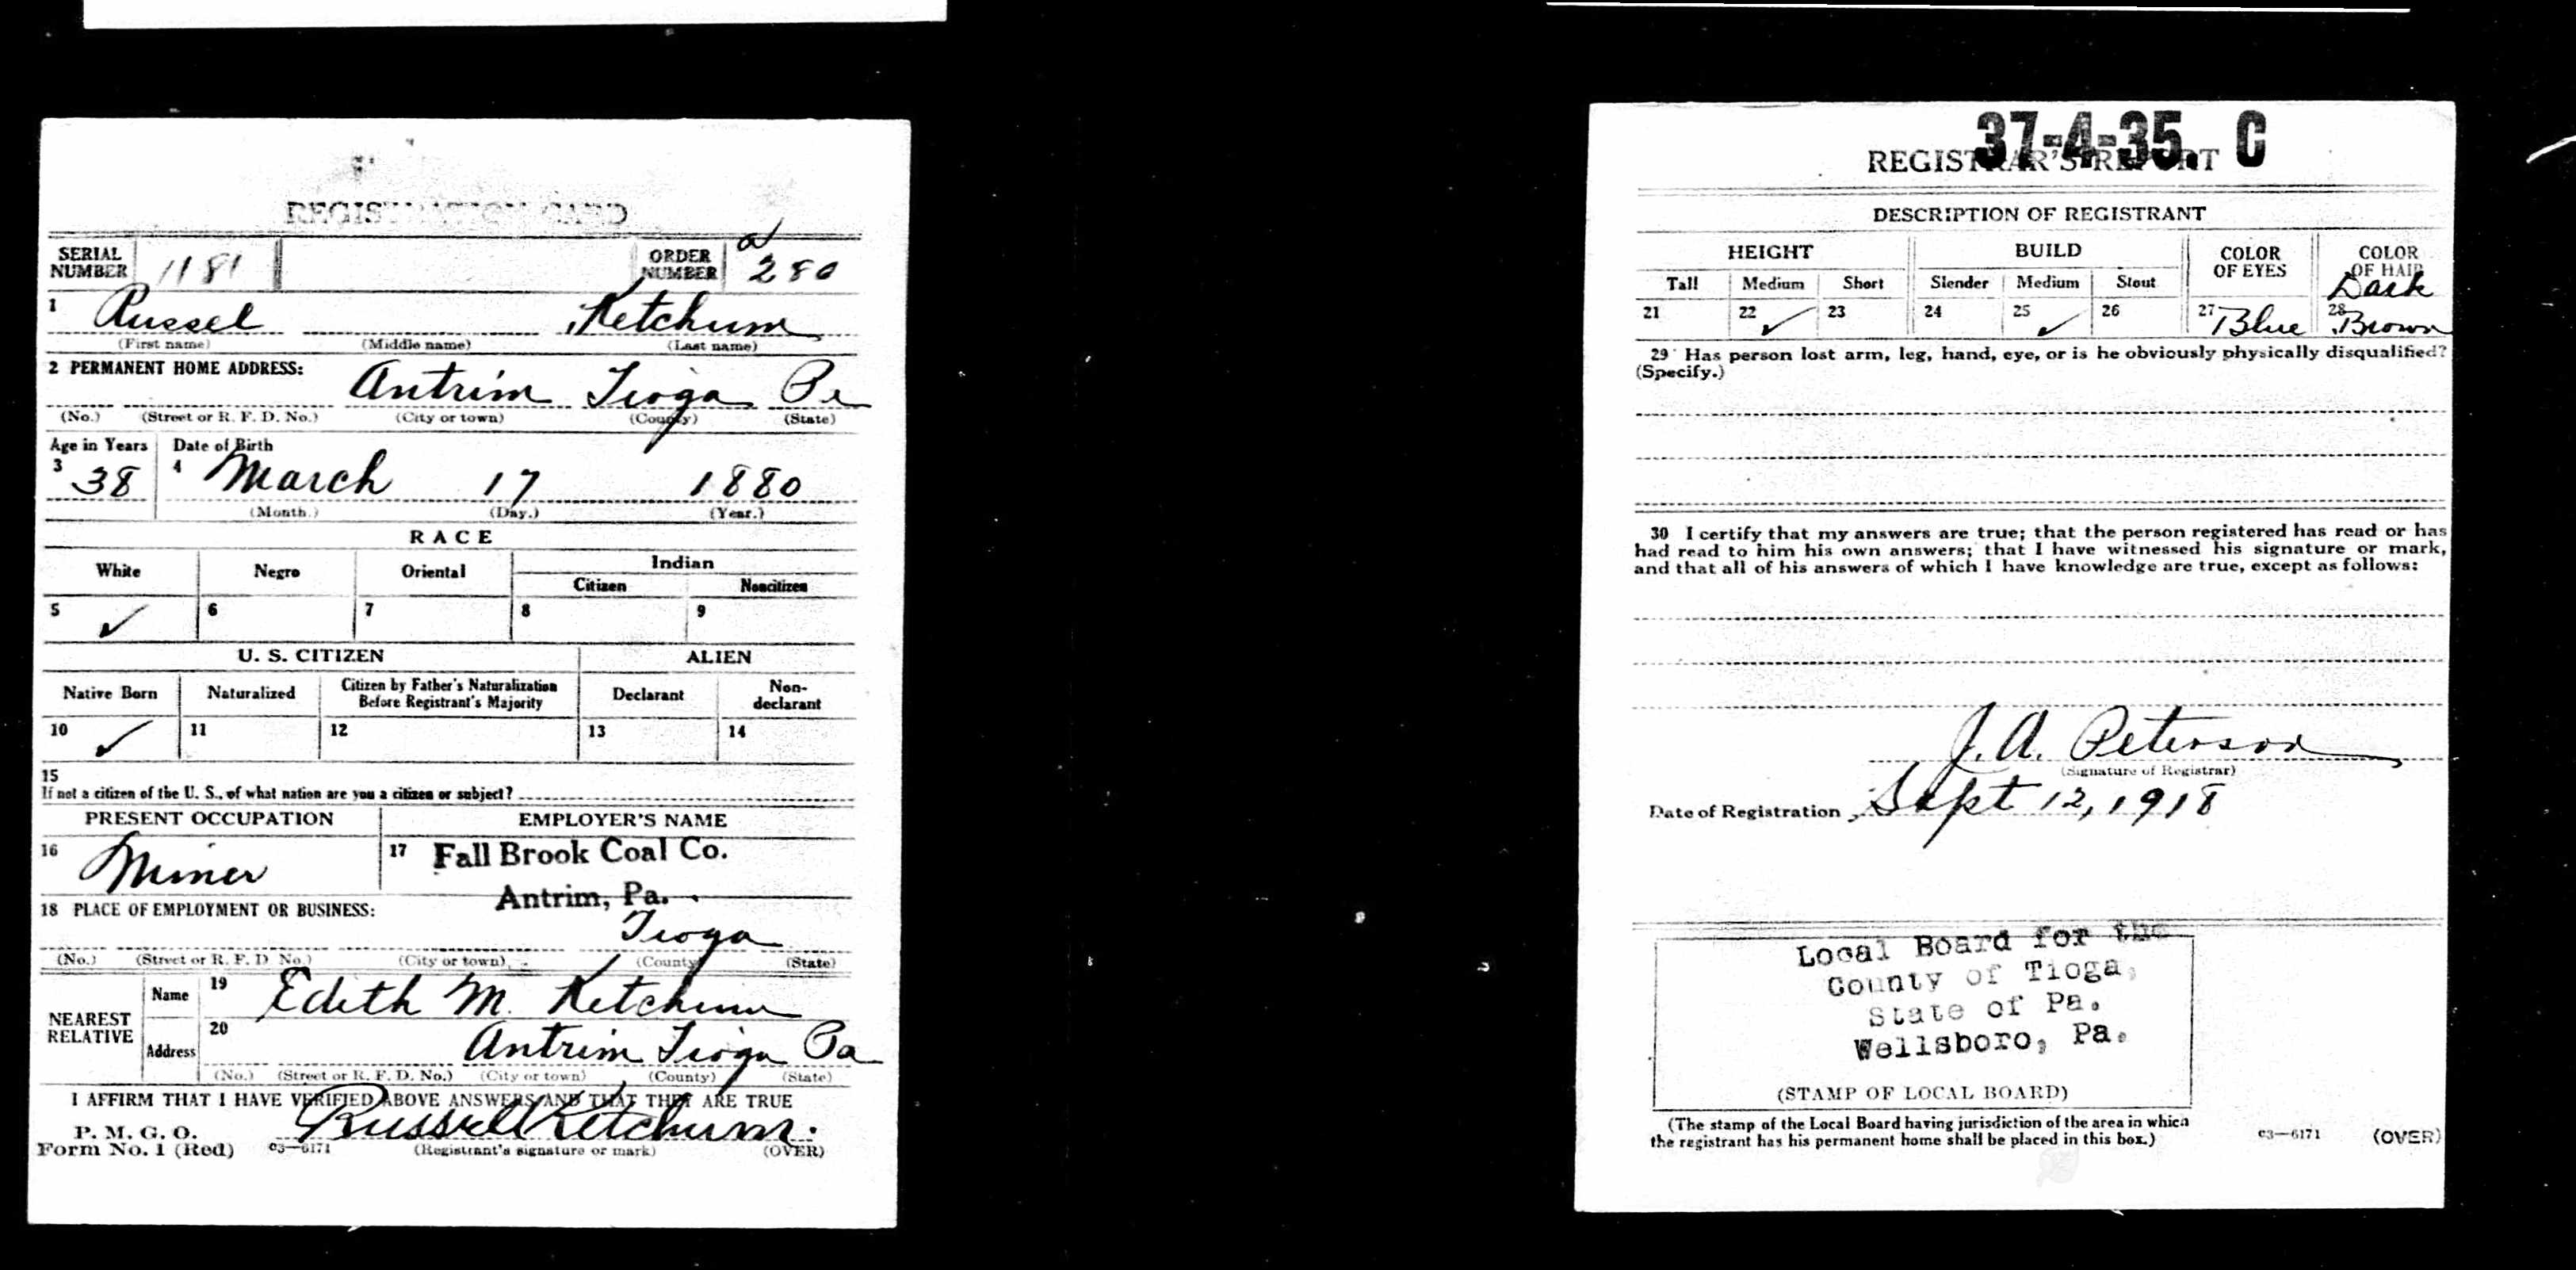 REGISTRATION CARD
SERIAL NUMBER 1181 ORDER NUMBER 280
1 Russel Ketchum
(First name) (Middle name) (Last name)
2 PERMANENT HOME ADDRESS:
Antrim Tioga Pa
(No.) (Street or R. F. D. No.) (City or town) (County) (State)
Age in Years Date of Birth
3 38 4 March 17 1880
(Month.) (Day.) (Year.)
RACE
White Negro Oriental Indian
Citizen Noncitizen
5 ✓ 6 7 8 9
U. S. CITIZEN ALIEN
Native Born Naturalized Citizen by Father's Naturalization Before Registrant's Majority Declarant Non-declarant
10 ✓ 11 12 13 14
15
If not a citizen of the U. S., of what nation are you a citizen or subject?
PRESENT OCCUPATION EMPLOYER'S NAME
16 Miner 17 Fall Brook Coal Co.
Antrim, Pa.
18 PLACE OF EMPLOYMENT OR BUSINESS:
Tioga
(No.) (Street or R. F. D. No.) (City or town) (County) (State)
NEAREST RELATIVE
Name 19 Edith M. Ketchum
Address 20 Antrim Tioga Pa
(No.) (Street or R. F. D. No.) (City or town) (County) (State)
I AFFIRM THAT I HAVE VERIFIED ABOVE ANSWERS AND THAT THEY ARE TRUE
P. M. G. O.
Form No. 1 (Red) c3—6171 Russell Ketchum.
(Registrant's signature or mark) (OVER)
37-4-35. C
REGISTRAR'S REPORT
DESCRIPTION OF REGISTRANT
HEIGHT BUILD COLOR OF EYES COLOR OF HAIR
Tall Medium Short Slender Medium Stout
21 22 ✓ 23 24 25 ✓ 26 27 Blue 28 Dark Brown
29 Has person lost arm, leg, hand, eye, or is he obviously physically disqualified?
(Specify.)
30 I certify that my answers are true; that the person registered has read or has
had read to him his own answers; that I have witnessed his signature or mark,
and that all of his answers of which I have knowledge are true, except as follows:
J. A. Peterson
(Signature of Registrar)
Date of Registration Sept 12, 1918
Local Board for the
County of Tioga,
State of Pa.
Wellsboro, Pa.
(STAMP OF LOCAL BOARD)
(The stamp of the Local Board having jurisdiction of the area in which
the registrant has his permanent home shall be placed in this box.)
c3—6171 (OVER)